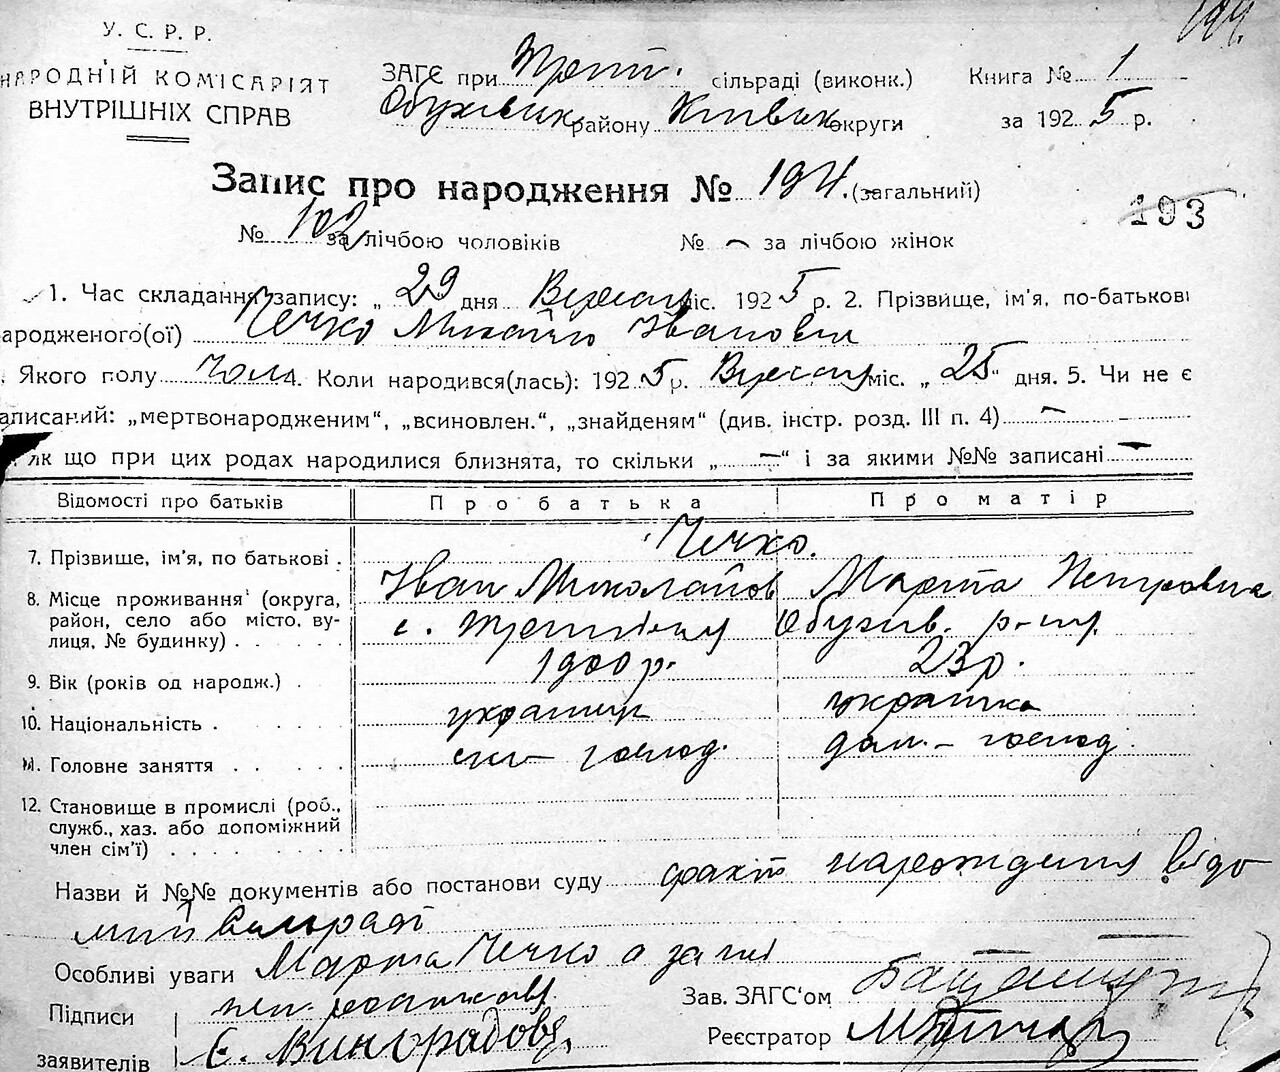 194.
У. С. Р. Р.
НАРОДНІЙ КОМІСАРІЯТ
ВНУТРІШНІХ СПРАВ
ЗАГС при Трип. сільраді (виконк.)
Обухівськ району Київськ округи
Книга № 1
за 1925 р.
Запис про народження № 194. (загальний)
193
№ 102 за лічбою чоловіків № – за лічбою жінок
1. Час складання запису: „ 29 дня Вересня міс. 1925 р. 2. Прізвище, ім'я, по-батькові
ародженого(ої) Чечко Михайло Іванович
. Якого полу Чол. 4. Коли народився(лась): 1925 р. Вересня міс. „ 25 “ дня. 5. Чи не є
аписаний: „мертвонародженим“, „всиновлен.“, „знайденям“ (див. інстр. розд. III п. 4) –
як що при цих родах народилися близнята, то скільки „ – “ і за якими №№ записані –
Відомості про батьків Про батька Про матір
7. Прізвище, ім'я, по батькові . Чечко.
Іван Миколайов Марта Петровна
8. Місце проживання (округа,
район, село або місто, ву-
лиця, № будинку) . . . . . . с. Трипілля Обухів. р-ну.
9. Вік (років од народж.) . 1900 р. 23 р.
10. Національність . українец українка
11. Головне заняття . . . . . сіл– господ. дом. – господ.
12. Становище в промислі (роб.,
служб., хаз. або допоміжний
член сім'ї) . . . . . . . . .
Назви й №№ документів або постанови суду факт народження відо
мий сільраді
Особливі уваги Марта Чечко а за неї
Підписи
заявителів Є. Виноградов
Зав. ЗАГС'ом
Реєстратор